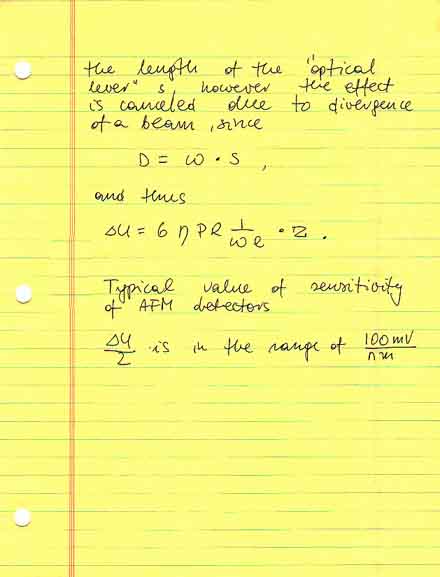 the length of the "optical
lever" s, however the effect
is canceled due to divergence
of a beam, since
D = ω · S ,
and thus
ΔU = 6 η P R 1/ωl · z .
Typical value of sensitivity
of AFM detectors
ΔU/z is in the range of 100mV/nm